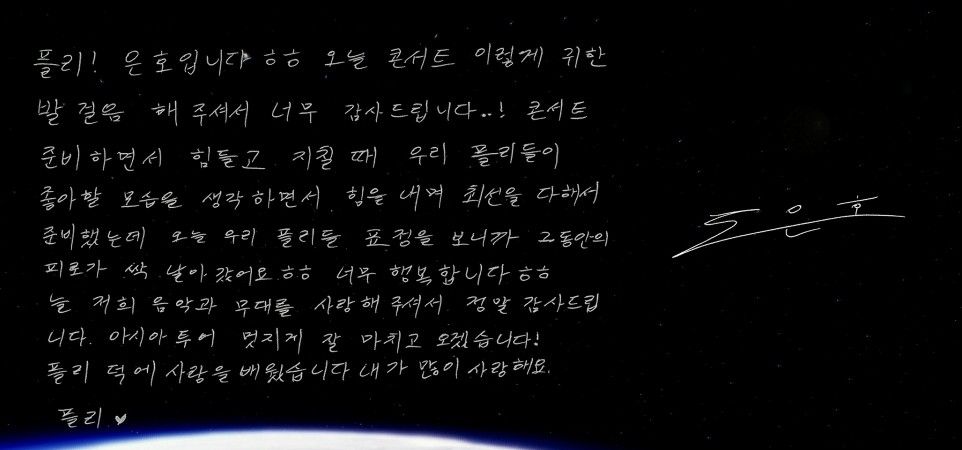 플리! 은호입니다 ㅎㅎ 오늘 콘서트 이렇게 귀한
발걸음 해 주셔서 너무 감사드립니다..! 콘서트
준비하면서 힘들고 지칠 때 우리 플리들이
좋아할 모습을 생각하면서 힘을 내며 최선을 다해서
준비했는데 오늘 우리 플리들 표정을 보니까 그동안의
피로가 싹 날아갔어요 ㅎㅎ 너무 행복합니다 ㅎㅎ
늘 저희 음악과 무대를 사랑해 주셔서 정말 감사드립
니다. 아시아 투어 멋지게 잘 마치고 오겠습니다!
플리 덕에 사랑을 배웠습니다 내가 많이 사랑해요.
플리 ♥
도은호